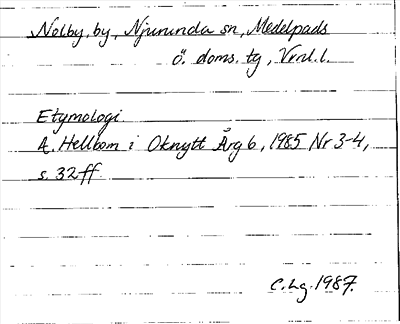 Nolby, by, Njurunda sn, Medelpads
ö. doms. tg, Vrnl. l.
Etymologi
A. Hellbom i Oknytt Årg 6, 1985 Nr 3-4,
s. 32 ff.
C. Lg. 1987.